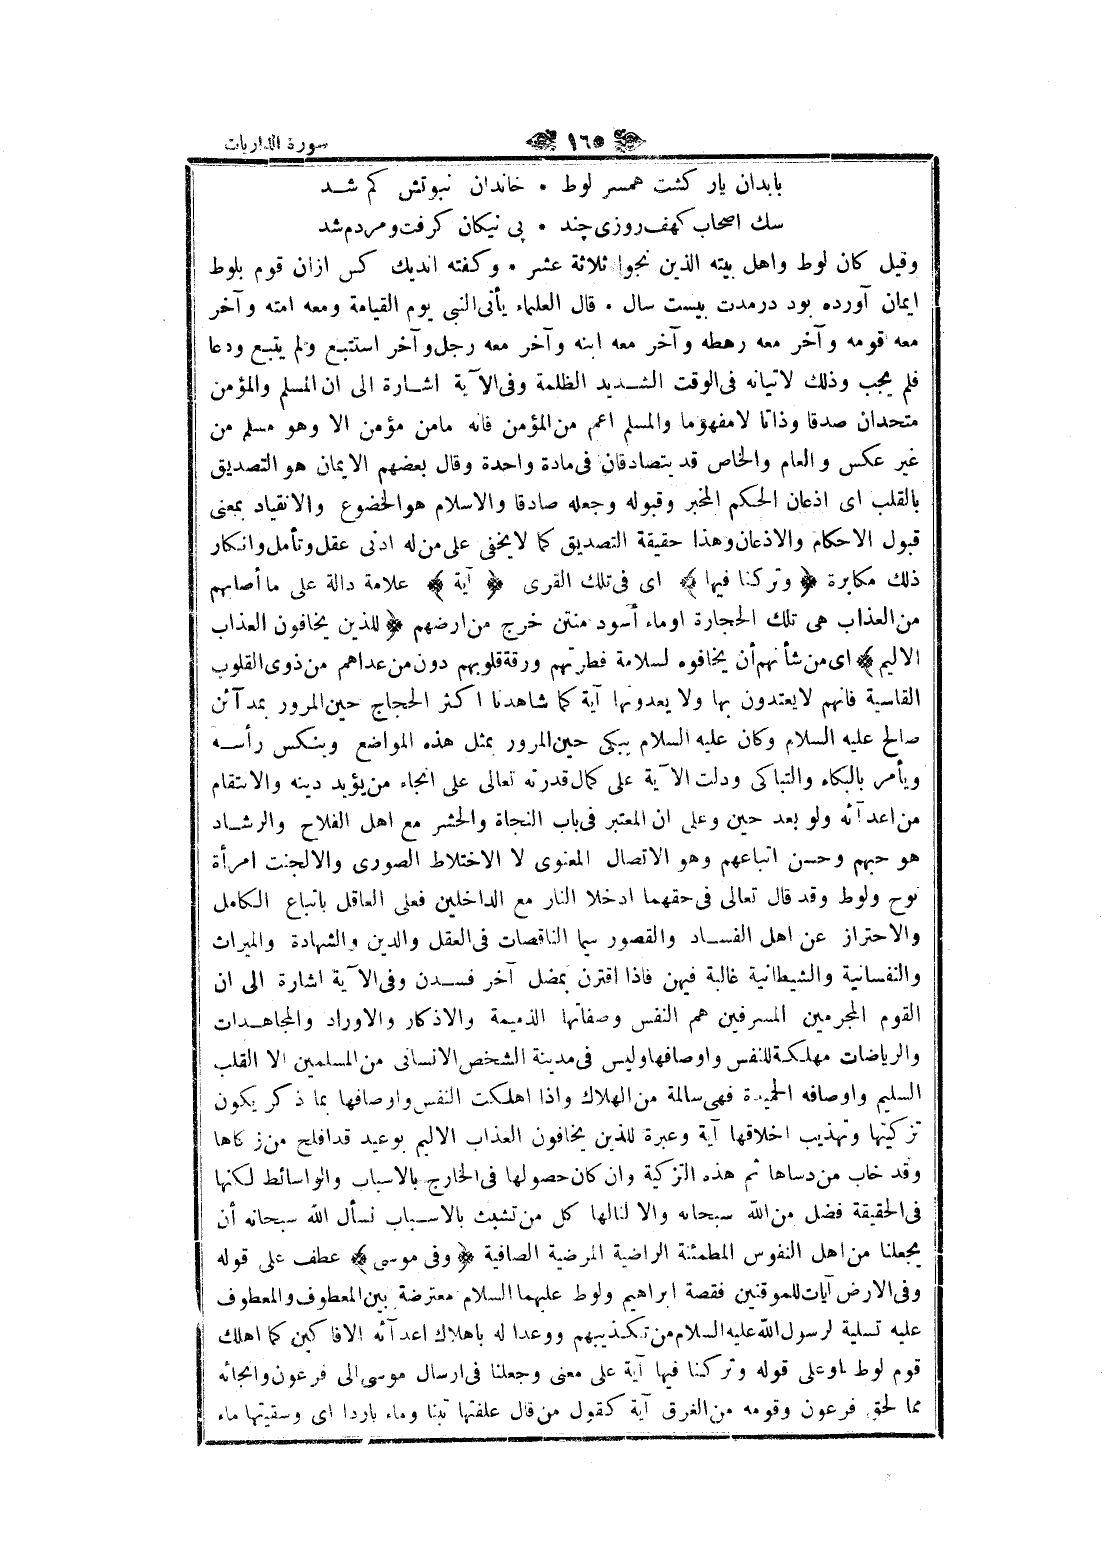 ١٦٥ سورة الذاريات
بابدان يار كشت همسر لوط • خاندان نبوتش كم شــد
سك اصحاب كهف روزى چند • پى نيكان كرفت ومردم شد
وقيل كان لوط واهل بيته الذين نجوا ثلاثة عشر • وكفته انديك كس ازان قوم بلوط
ايمان آورده بود درمدت بيست سال • قال العلماء يأتى النبى يوم القيامة ومعه امته وآخر
معه قومه وآخر معه رهطه وآخر معه ابنه وآخر معه رجل وآخر استتبع ولم يتبع ودعا
فلم يجب وذلك لاتيانه فى الوقت الشديد الظلمة وفى الآية اشارة الى ان المسلم والمؤمن
متحدان صدقا وذاتا لامفهوما والمسلم اعم من المؤمن فانه مامن مؤمن الا وهو مسلم من
غير عكس والعام والخاص قد يتصادقان فى مادة واحدة وقال بعضهم الايمان هو التصديق
بالقلب اى اذعان الحكم المخبر وقبوله وجعله صادقا والاسلام هو الخضوع والانقياد بمعنى
قبول الاحكام والاذعان وهذا حقيقة التصديق كما لايخفى على من له ادنى عقل وتأمل وانكار
ذلك مكابرة ﴿ وتركنا فيها ﴾ اى فى تلك القرى ﴿ آية ﴾ علامة دالة على ما أصابهم
من العذاب هى تلك الحجارة اوماء أسود منتن خرج من ارضهم ﴿ للذين يخافون العذاب
الاليم ﴾ اى من شأنهم أن يخافوه لسلامة فطرتهم ورقة قلوبهم دون من عداهم من ذوى القلوب
القاسية فانهم لايعتدون بها ولا يعدونها آية كما شاهدنا اكثر الحجاج حين المرور بمدآئن
صالح عليه السلام وكان عليه السلام يبكى حين المرور بمثل هذه المواضع وينكس رأســه
ويأمر بالبكاء والتباكى ودلت الآية على كمال قدرته تعالى على انجاء من يؤيد دينه والانتقام
من اعدآئه ولو بعد حين وعلى ان المعتبر فى باب النجاة والحشر مع اهل الفلاح والرشــاد
هو حبهم وحسن اتباعهم وهو الاتصال المعنوى لا الاختلاط الصورى والالنجت امرأة
نوح ولوط وقد قال تعالى فى حقهما ادخلا النار مع الداخلين فعلى العاقل باتباع الكامل
والاحتراز عن اهل الفســاد والقصور سيما الناقصات فى العقل والدين والشهادة والميراث
والنفسانية والشيطانية غالبة فيهن فاذا اقترن بمضل آخر فســدن وفى الآية اشارة الى ان
القوم المجرمين المسرفين هم النفس وصفاتها الذميمة والاذكار والاوراد والمجاهــدات
والرياضات مهلكة للنفس واوصافها وليس فى مدينة الشخص الانسانى من المسلمين الا القلب
السليم واوصافه الحميدة فهى سالمة من الهلاك واذا اهلكت النفس واوصافها بما ذكر يكون
تزكيتها وتهذيب اخلاقها آية وعبرة للذين يخافون العذاب الاليم بوعيد قد افلح من زكاها
وقد خاب من دساها ثم هذه التزكية وان كان حصولها فى الخارج بالاسباب والواسائط لكنها
فى الحقيقة فضل من الله سبحانه والا لنالها كل من تشبث بالاســباب نسأل الله سبحانه أن
يجعلنا من اهل النفوس المطمئنة الراضية المرضية الصافية ﴿ وفى موسى ﴾ عطف على قوله
وفى الارض آيات للموقنين فقصة ابراهيم ولوط عليهما السلام معترضة بين المعطوف والمعطوف
عليه تسلية لرسول الله عليه السلام من تكذيبهم ووعدا له باهلاك اعدآئه الافاكين كما اهلك
قوم لوط اوعلى قوله وتركنا فيها آية على معنى وجعلنا فى ارسال موسى الى فرعون وانجائه
مما لحق فرعون وقومه من الغرق آية كقول من قال علفتها تبنا وماء باردا اى وسقيتها ماء